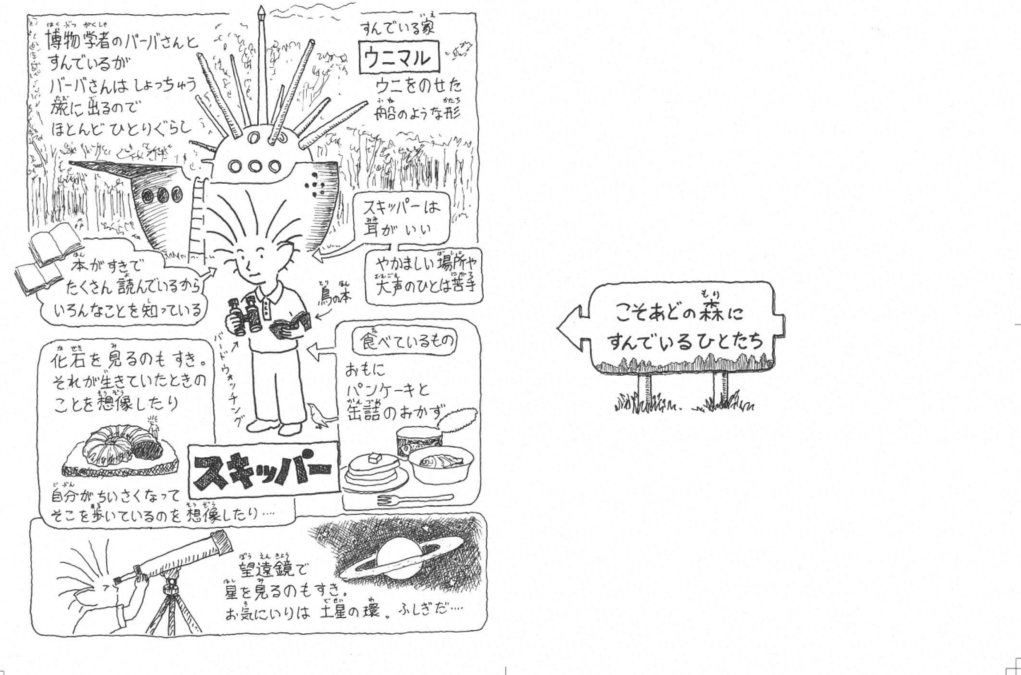 博物学者のバーバさんと
すんでいるが
バーバさんは しょっちゅう
旅に出るので
ほとんど ひとりぐらし
すんでいる家
ウニマル
ウニをのせた
船のような形
スキッパーは
耳が いい
やかましい場所や
大声のひとは苦手
本がすきで
たくさん 読んでいるから
いろんなことを知っている
鳥の本
バードウォッチング
食べているもの
おもに
パンケーキと
缶詰のおかず
化石を見るのも すき。
それが生きていたときの
ことを想像したり
自分がちいさくなって
そこを歩いているのを想像したり‥‥
スキッパー
望遠鏡で
星を見るのもすき。
お気にいりは 土星の環。ふしぎだ‥‥
こそあどの森に
すんでいるひとたち